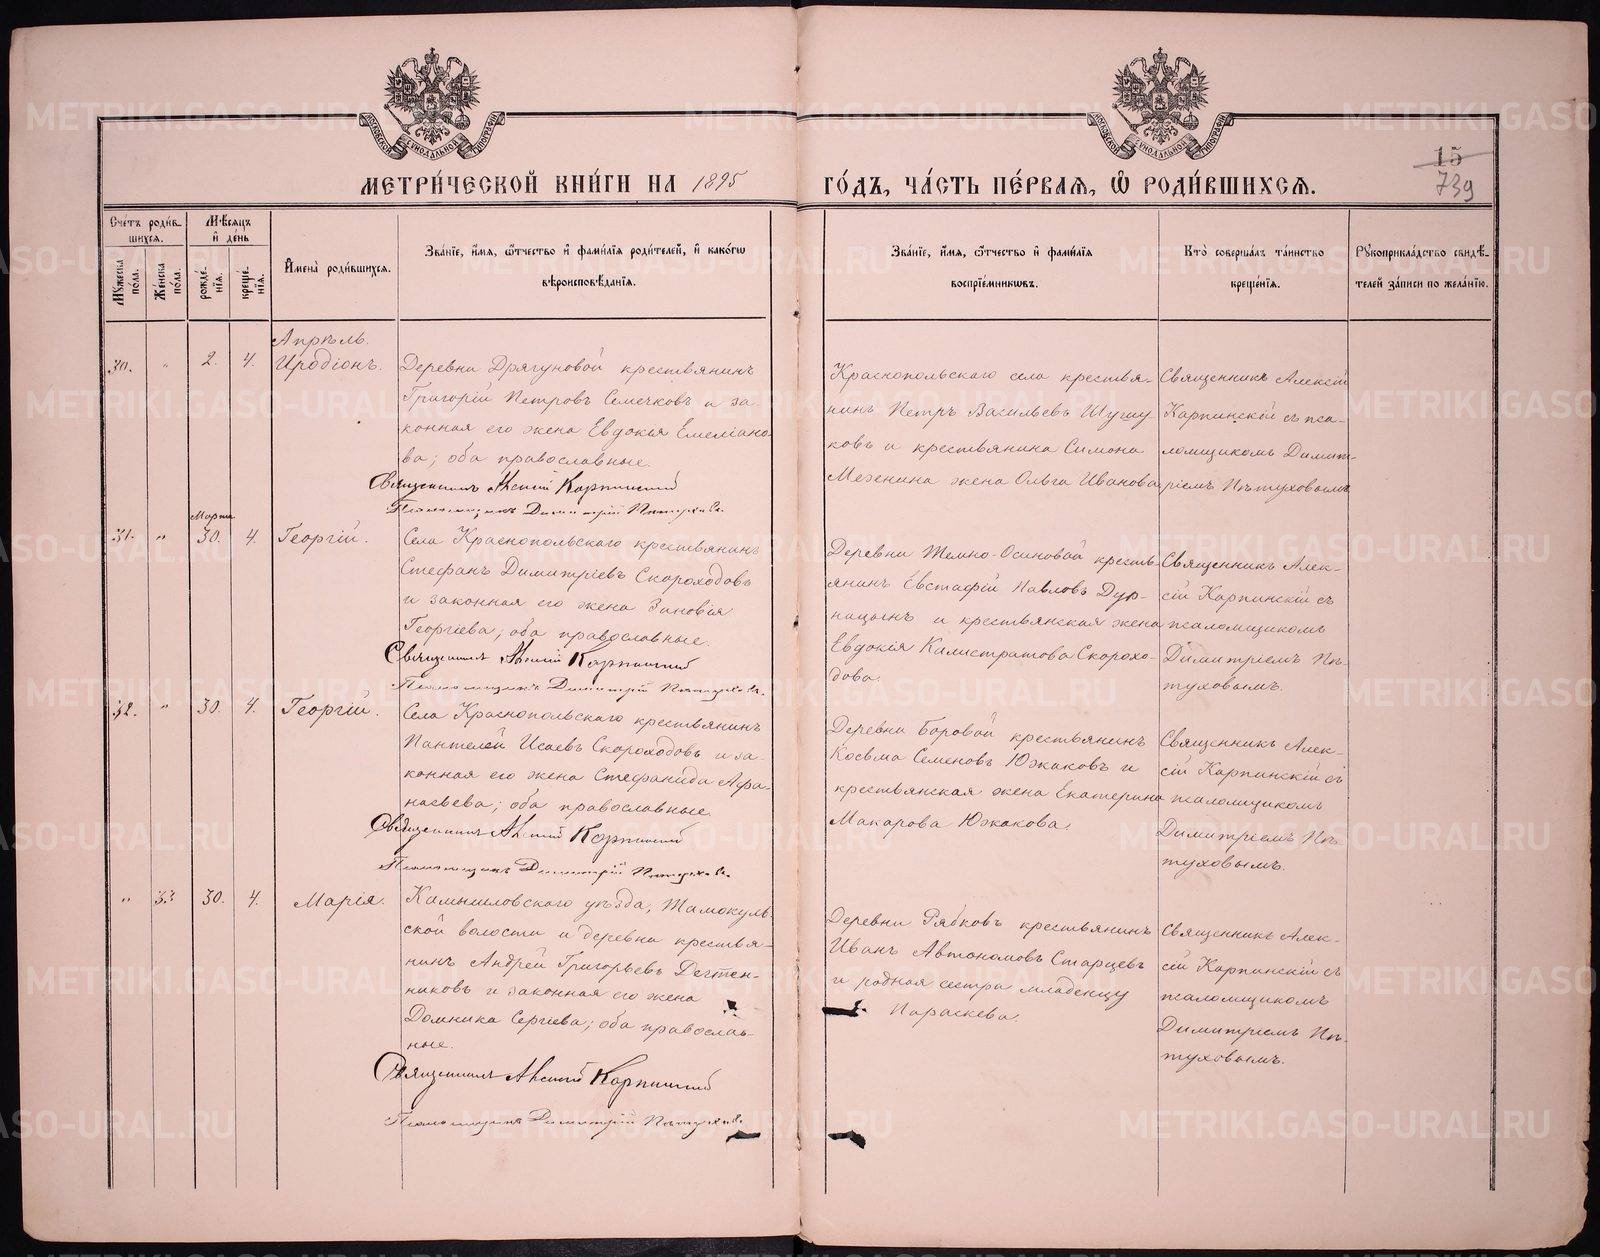 МОСКОВСКОЙ СУНОДАЛЬНОЙ ТИПОГРАФІИ
МОСКОВСКОЙ СУНОДАЛЬНОЙ ТИПОГРАФІИ
15
739
МЕТРИ́ЧЕСКОЙ КНИ́ГИ НА 1895 ГО́ДЪ, ЧА́СТЬ ПЕ́РВАЯ, Ѿ РОДИ́ВШИХСЯ.
Сче́тъ роди́в-
шихся.
Мꙋ́жеска по́ла.
Же́нска по́ла.
Мѣ́сяцъ
и҆ де́нь
рожде́-
нїя.
креще́-
нїя.
И҆мена̀ роди́вшихся.
Зва́нїе, и҆́мя, ѻ҆́тчество и҆ фами́лїя роди́телей, и҆ како́гѡ
вѣроисповѣ́данїя.
Зва́нїе, и҆́мя, ѻ҆́тчество и҆ фами́лїя
воспрїе́мникѡвъ.
Кто̀ соверша́лъ та́инство
креще́нїя.
Рꙋкоприкла́дство свидѣ́-
телей за́писи по жела́нїю.
Апрѣль.
30. " 2. 4. Иродіонъ.
Деревни Дрягуновой крестьянинъ
Григорій Петровъ Семечковъ и за-
конная его жена Евдокія Емеліано-
ва; оба православные.
Священникъ Алексій Карпинскій
Псаломщикъ Димитрій Пѣтуховъ.
Краснопольскаго села крестья-
нинъ Петръ Васильевъ Шушу
ковъ и крестьянина Симона
Меженина жена Ольга Иванова
Священникъ Алексій
Карпинскій съ пса-
ломщикомъ Димит-
ріемъ Пѣтуховымъ
Марта
31. " 30. 4. Георгій.
Села Краснопольскаго крестьянинъ
Стефанъ Димитріевъ Скороходовъ
и законная его жена Зиновія
Георгіева; оба православные.
Священникъ Алексій Карпинскій
Псаломщикъ Димитрій Пѣтуховъ.
Деревни Темно-Осиновой кресть-
янинъ Евстафій Павловъ Дур-
ницынъ и крестьянская жена
Евдокія Калистратова Скорохо-
дова.
Священникъ Алек-
сій Карпинскій съ
псаломщикомъ
Димитріемъ Пѣ-
туховымъ.
32. " 30. 4. Георгій.
Села Краснопольскаго крестьянинъ
Пантелей Исаевъ Скороходовъ и за-
конная его жена Стефанида Афа-
насьева; оба православные.
Священникъ Алексій Карпинскій
Псаломщикъ Димитрій Пѣтуховъ.
Деревни Боровой крестьянинъ
Косьма Семеновъ Южаковъ и
крестьянская жена Екатерина
Макарова Южакова.
Священникъ Алек-
сій Карпинскій съ
псаломщикомъ
Димитріемъ Пѣ-
туховымъ.
" 33 30. 4. Марія.
Камышловскаго уѣзда, Тамокуль-
ской волости и деревни крестья-
нинъ Андрей Григорьевъ Дегтен-
никовъ и законная его жена
Домника Сергіева; оба православ-
ные.
Священникъ Алексій Карпинскій
Псаломщикъ Димитрій Пѣтуховъ.
Деревни Рябковъ крестьянинъ
Иванъ Автономовъ Старцевъ
и родная сестра младенцу
Параскева.
Священникъ Алек-
сій Карпинскій съ
псаломщикомъ
Димитріемъ Пѣ-
туховымъ.
METRIKI.GASO-URAL.RU